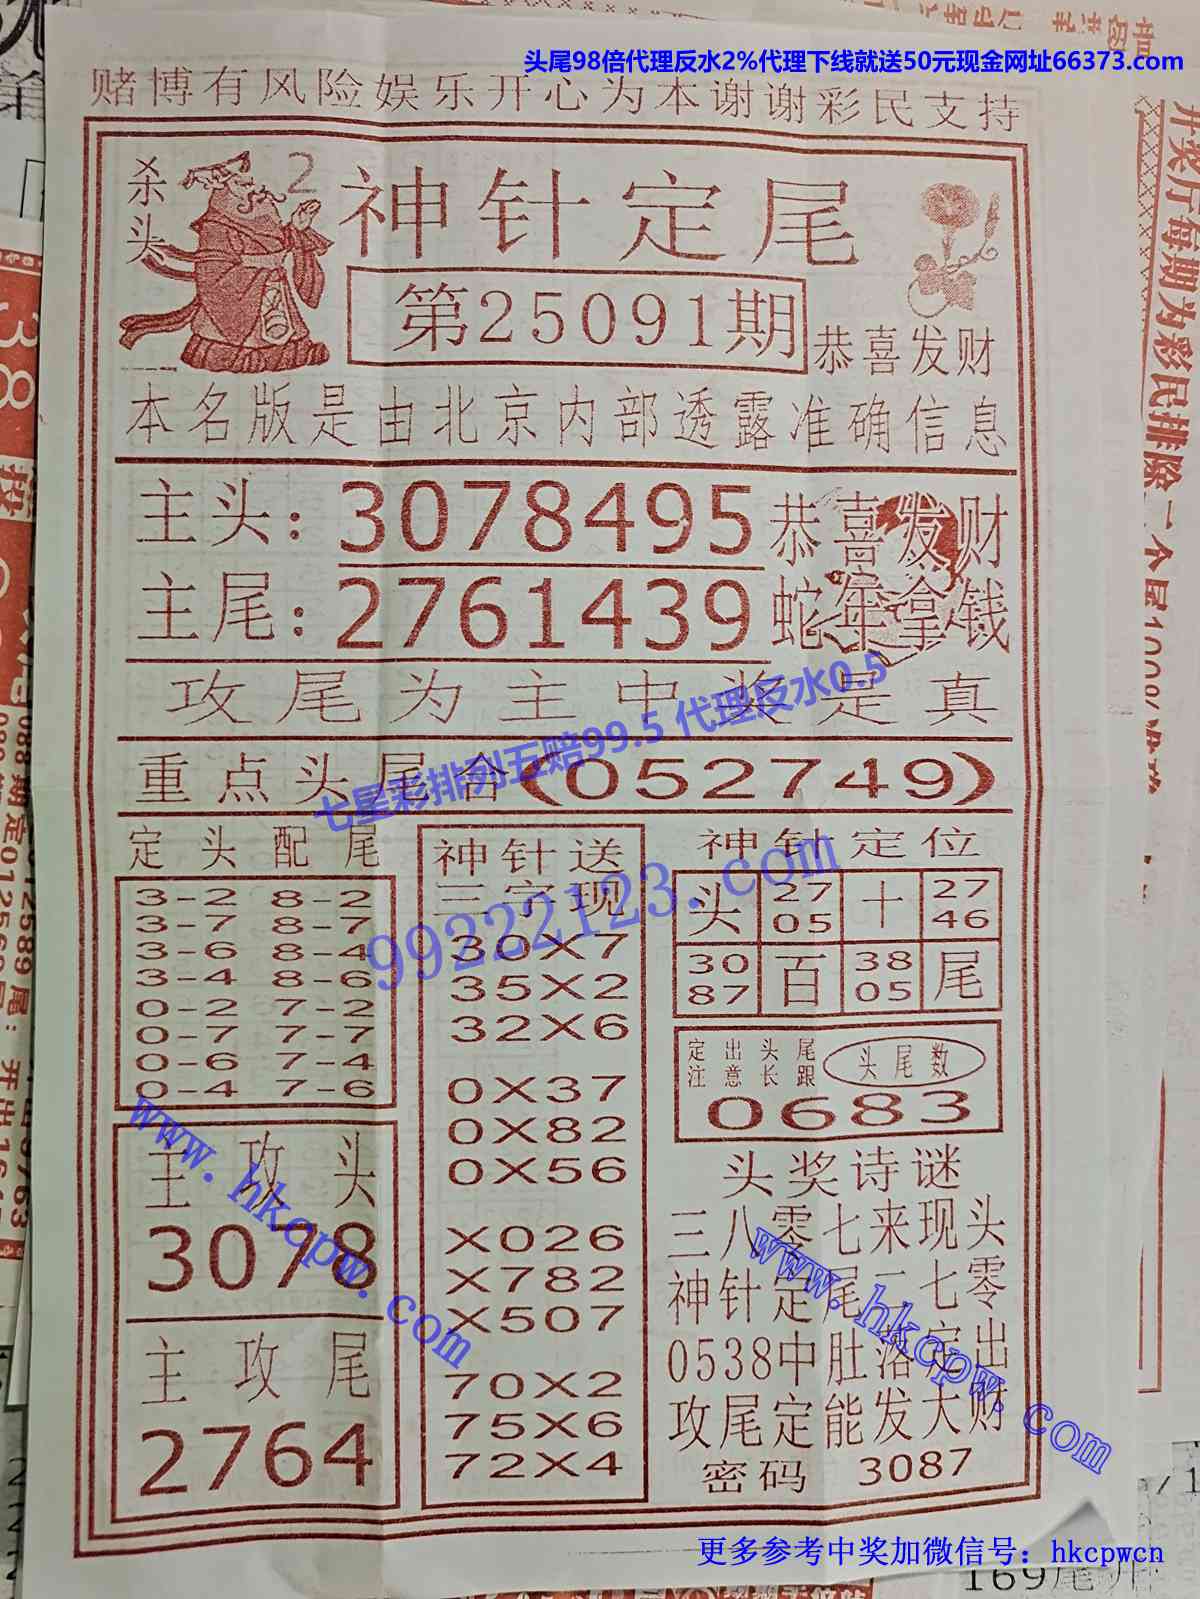 头尾98倍代理反水2%代理下线就送50元现金网址66373.com
赌博有风险娱乐开心为本谢谢彩民支持
杀头
2
神针定尾
第25091期
恭喜发财
本名版是由北京内部透露准确信息
主头：3078495
恭喜发财
主尾：2761439
蛇年拿钱
攻尾为主中奖是真
重点头尾合(052749)
七星彩排列五赔99.5 代理反水0.5
99222123.com
定头配尾
3-2 8-2
3-7 8-7
3-6 8-4
3-4 8-6
0-2 7-2
0-7 7-7
0-6 7-4
0-4 7-6
主攻头
3078
主攻尾
2764
神针送
三字现
30X7
35X2
32X6
0X37
0X82
0X56
X026
X782
X507
70X2
75X6
72X4
神针定位
头 27 十 27
05 46
30 百 38 尾
87 05
定出头尾
注意长跟
头尾数
0683
头奖诗谜
三八零七来现头
神针定尾二七零
0538中肚落定出
攻尾定能发大财
密码 3087
www.hkcpw.com
www.hkcpw.com
更多参考中奖加微信号：hkcpwcn
开奖厅每期为彩民排除二个尾100%准确
169尾